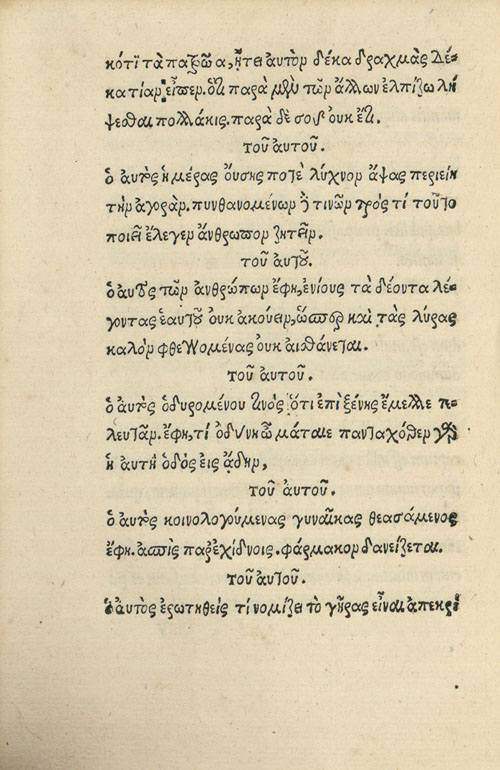 κότι τὰ πατρῶα, ᾔτει αὐτὸν δέκα δραχμὰς Δέ-
κα τίαν εἶπεν. ὅτι παρὰ μὲν τῶν ἄλλων ἐλπίζω λή
ψεσθαι πολλάκις. παρὰ δὲ σοῦ οὐκ ἔτι.
τοῦ αὐτοῦ.
ὁ αὐτὸς ἡμέρας οὔσης ποτὲ λύχνον ἅψας περιείη
τὴν ἀγοράν. πυνθανομένων δὲ τινῶν πρὸς τί τοῦτο
ποιεῖ ἔλεγεν ἄνθρωπον ζητεῖν.
τοῦ αὐτοῦ.
ὁ αὐτὸς τῶν ἀνθρώπων ἔφη, ἐνίους τὰ δέοντα λέ-
γοντας ἑαυτοῦ οὐκ ἀκούειν, ὥσπερ καὶ τὰς λύρας
καλὸν φθεγγομένας οὐκ αἰσθάνεται.
τοῦ αὐτοῦ.
ὁ αὐτὸς ὀδυρομένου τινὸς ὅτι ἐπὶ ξένης ἔμελλε τε-
λευτᾶν. ἔφη, τί ὀδύνη ὦ μάταιε πανταχόθεν γὰρ
ἡ αὐτὴ ὁδὸς εἰς ἅδην,
τοῦ αὐτοῦ.
ὁ αὐτὸς κοινολογούμενας γυναῖκας θεασάμενος
ἔφη. ἀσπὶς παρ' ἐχίδνοις. φάρμακον δανείζεται.
τοῦ αὐτοῦ.
ὁ αὐτὸς ἐρωτηθεὶς τί νομίζει τὸ γῆρας εἶναι ἀπεκρί